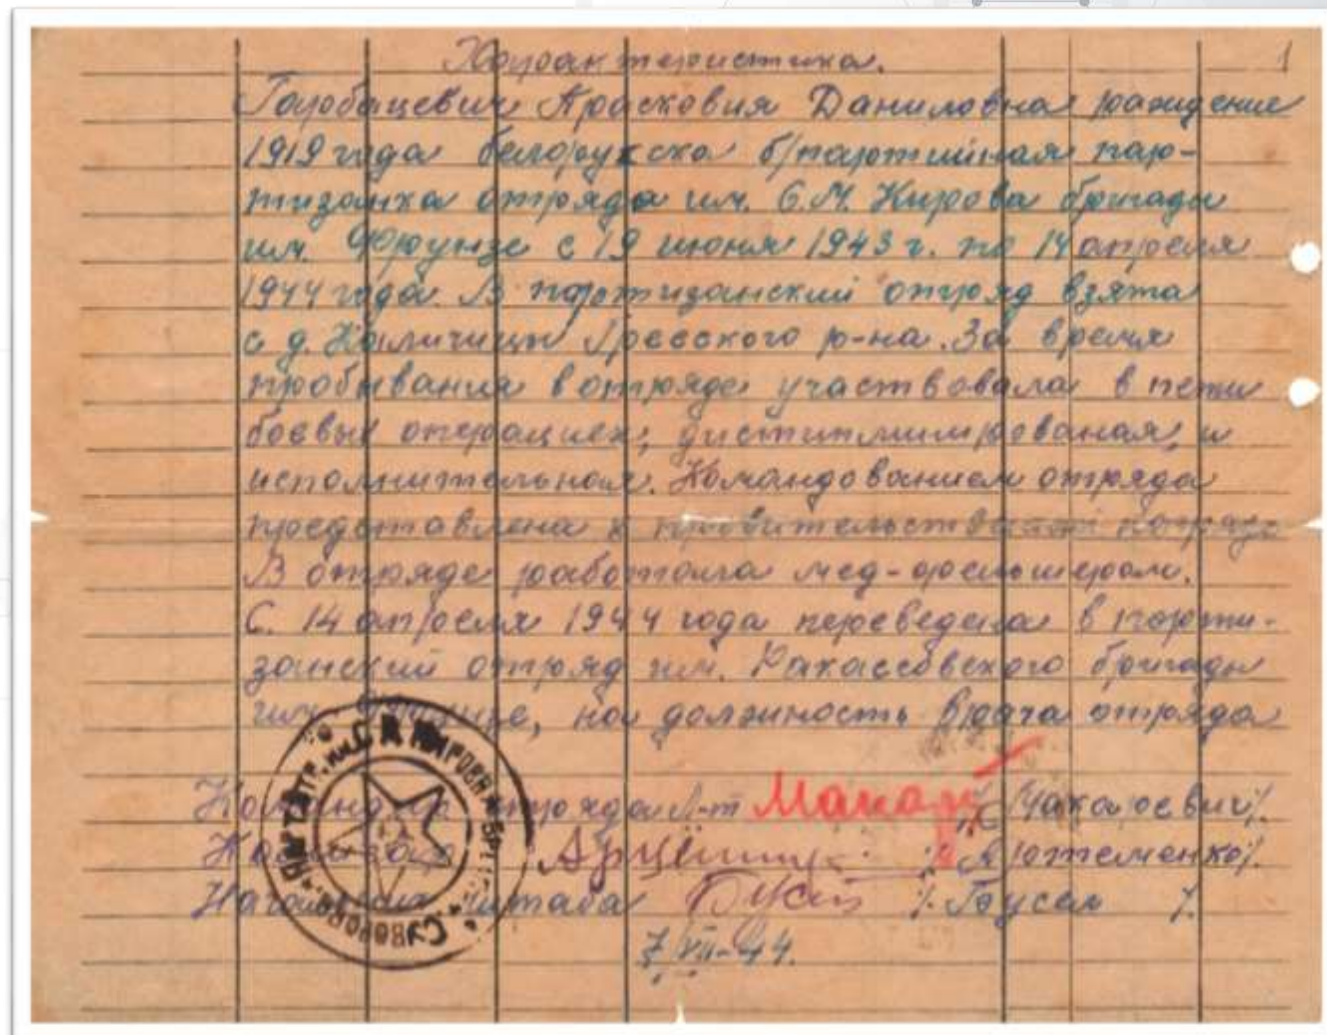 Характеристика.
1
Горбацевич Прасковия Даниловна рождение
1919 года белоруска б/партийная пар-
тизанка отряда им. С.М. Кирова бригады
им. Фрунзе с 19 июня 1943 г. по 14 апреля
1944 года. В партизанский отряд взята
с д. Греского р-на. За время
пробывания в отряде участвовала в пети
боевых операциех, дистиплинированая, и
исполнительная. Командованием отряда
представлена к правительственной награде
В отряде работала мед-фельшером.
С. 14 апреля 1944 года переведена в парти-
занский отряд им. Ракассовского бригады
им. Фрунзе, на должность врача отряда
Командир отряда Л-т Макар /Макаревич/.
Комиссар /Артеменко/.
Начальник штаба /Бусел/.
7/VII-44.
ПАРТ. ОТР. им. С.М. КИРОВА БРИГ. СУВОРОВА